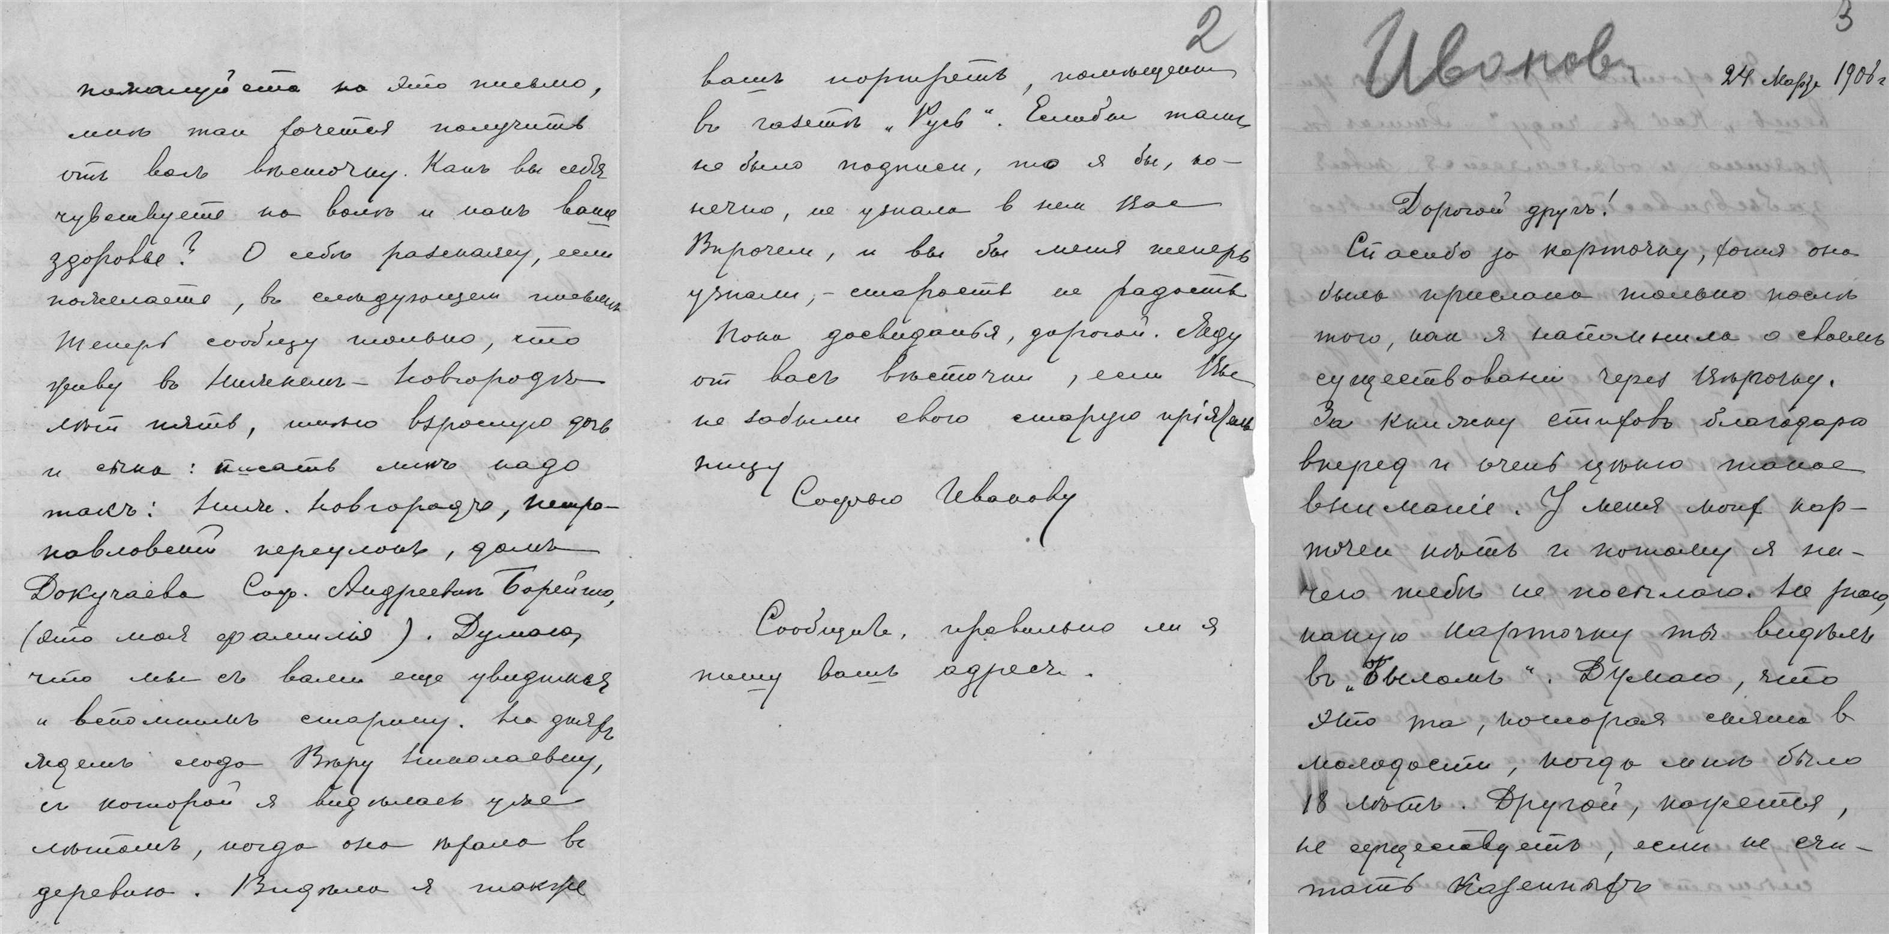 пожалуйста на это письмо,
мнѣ так хочется получить
отъ васъ вѣсточку. Какъ вы себя
чувствуете на волѣ и какъ ваше
здоровье? О себѣ разскажу, если
пожелаете, въ слѣдующем письмѣ
Теперь сообщу только, что
живу въ Нижнемъ-Новгородѣ
лѣт пять, имѣю взрослую дочь
и сына: писать мнѣ надо
такъ: Ниж. Новгородъ, Петро-
павловский переулокъ, домъ
Докучаева Соф. Андреевнѣ Борейшо,
(это моя фамилія). Думаю,
что мы съ вами еще увидимся
и вспомнимъ старину. На дняхъ
ждемъ сюда Вѣру Николаевну,
съ которой я видѣлась уже
лѣтомъ, когда она ѣхала в
деревню. Видѣла я также
2
вашъ портретъ, помѣщенный
въ газетѣ „Русь“. Еслибы тамъ
не было подписи, то я бы, ко-
нечно, не узнала в нем Вас
Впрочем, и вы бы меня теперь
узнали, - старость не радость
Пока досвиданья, дорогой. Жду
от васъ вѣсточки, если Вы
не забыли свою старую пріятель
ницу
Софью Иванову
Сообщите, правильно ли я
пишу вашъ адресъ.
3
Иванов
24 Марта 190 г
Дорогой другъ!
Спасибо за карточку, хотя она
была прислана только послѣ
того, как я напомнила о своемъ
существовании через Вѣрочку.
За книжку стихов благодарю
вперед и очень цѣню такое
вниманіе. У меня моих кар-
точек нѣтъ и потому я ни-
чего тебѣ не посылаю. Не знаю,
какую карточку ты видѣлъ
въ „Быломъ“. Думаю, что
это та, которая снята в
молодости, когда мнѣ было
18 лѣтъ. Другой, кажется,
не существуетъ, если не счи-
тать казенныхъ